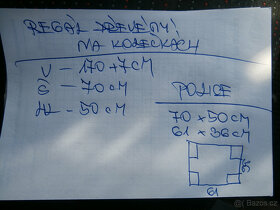 REGÁL DŘEVĚNÝ
NA KOLEČKÁCH
V - 170 + 7 CM
Š - 70 CM
HL - 50 CM
POLICE
70 x 50 CM
61 x 36 CM
36
61
Bazoš.cz